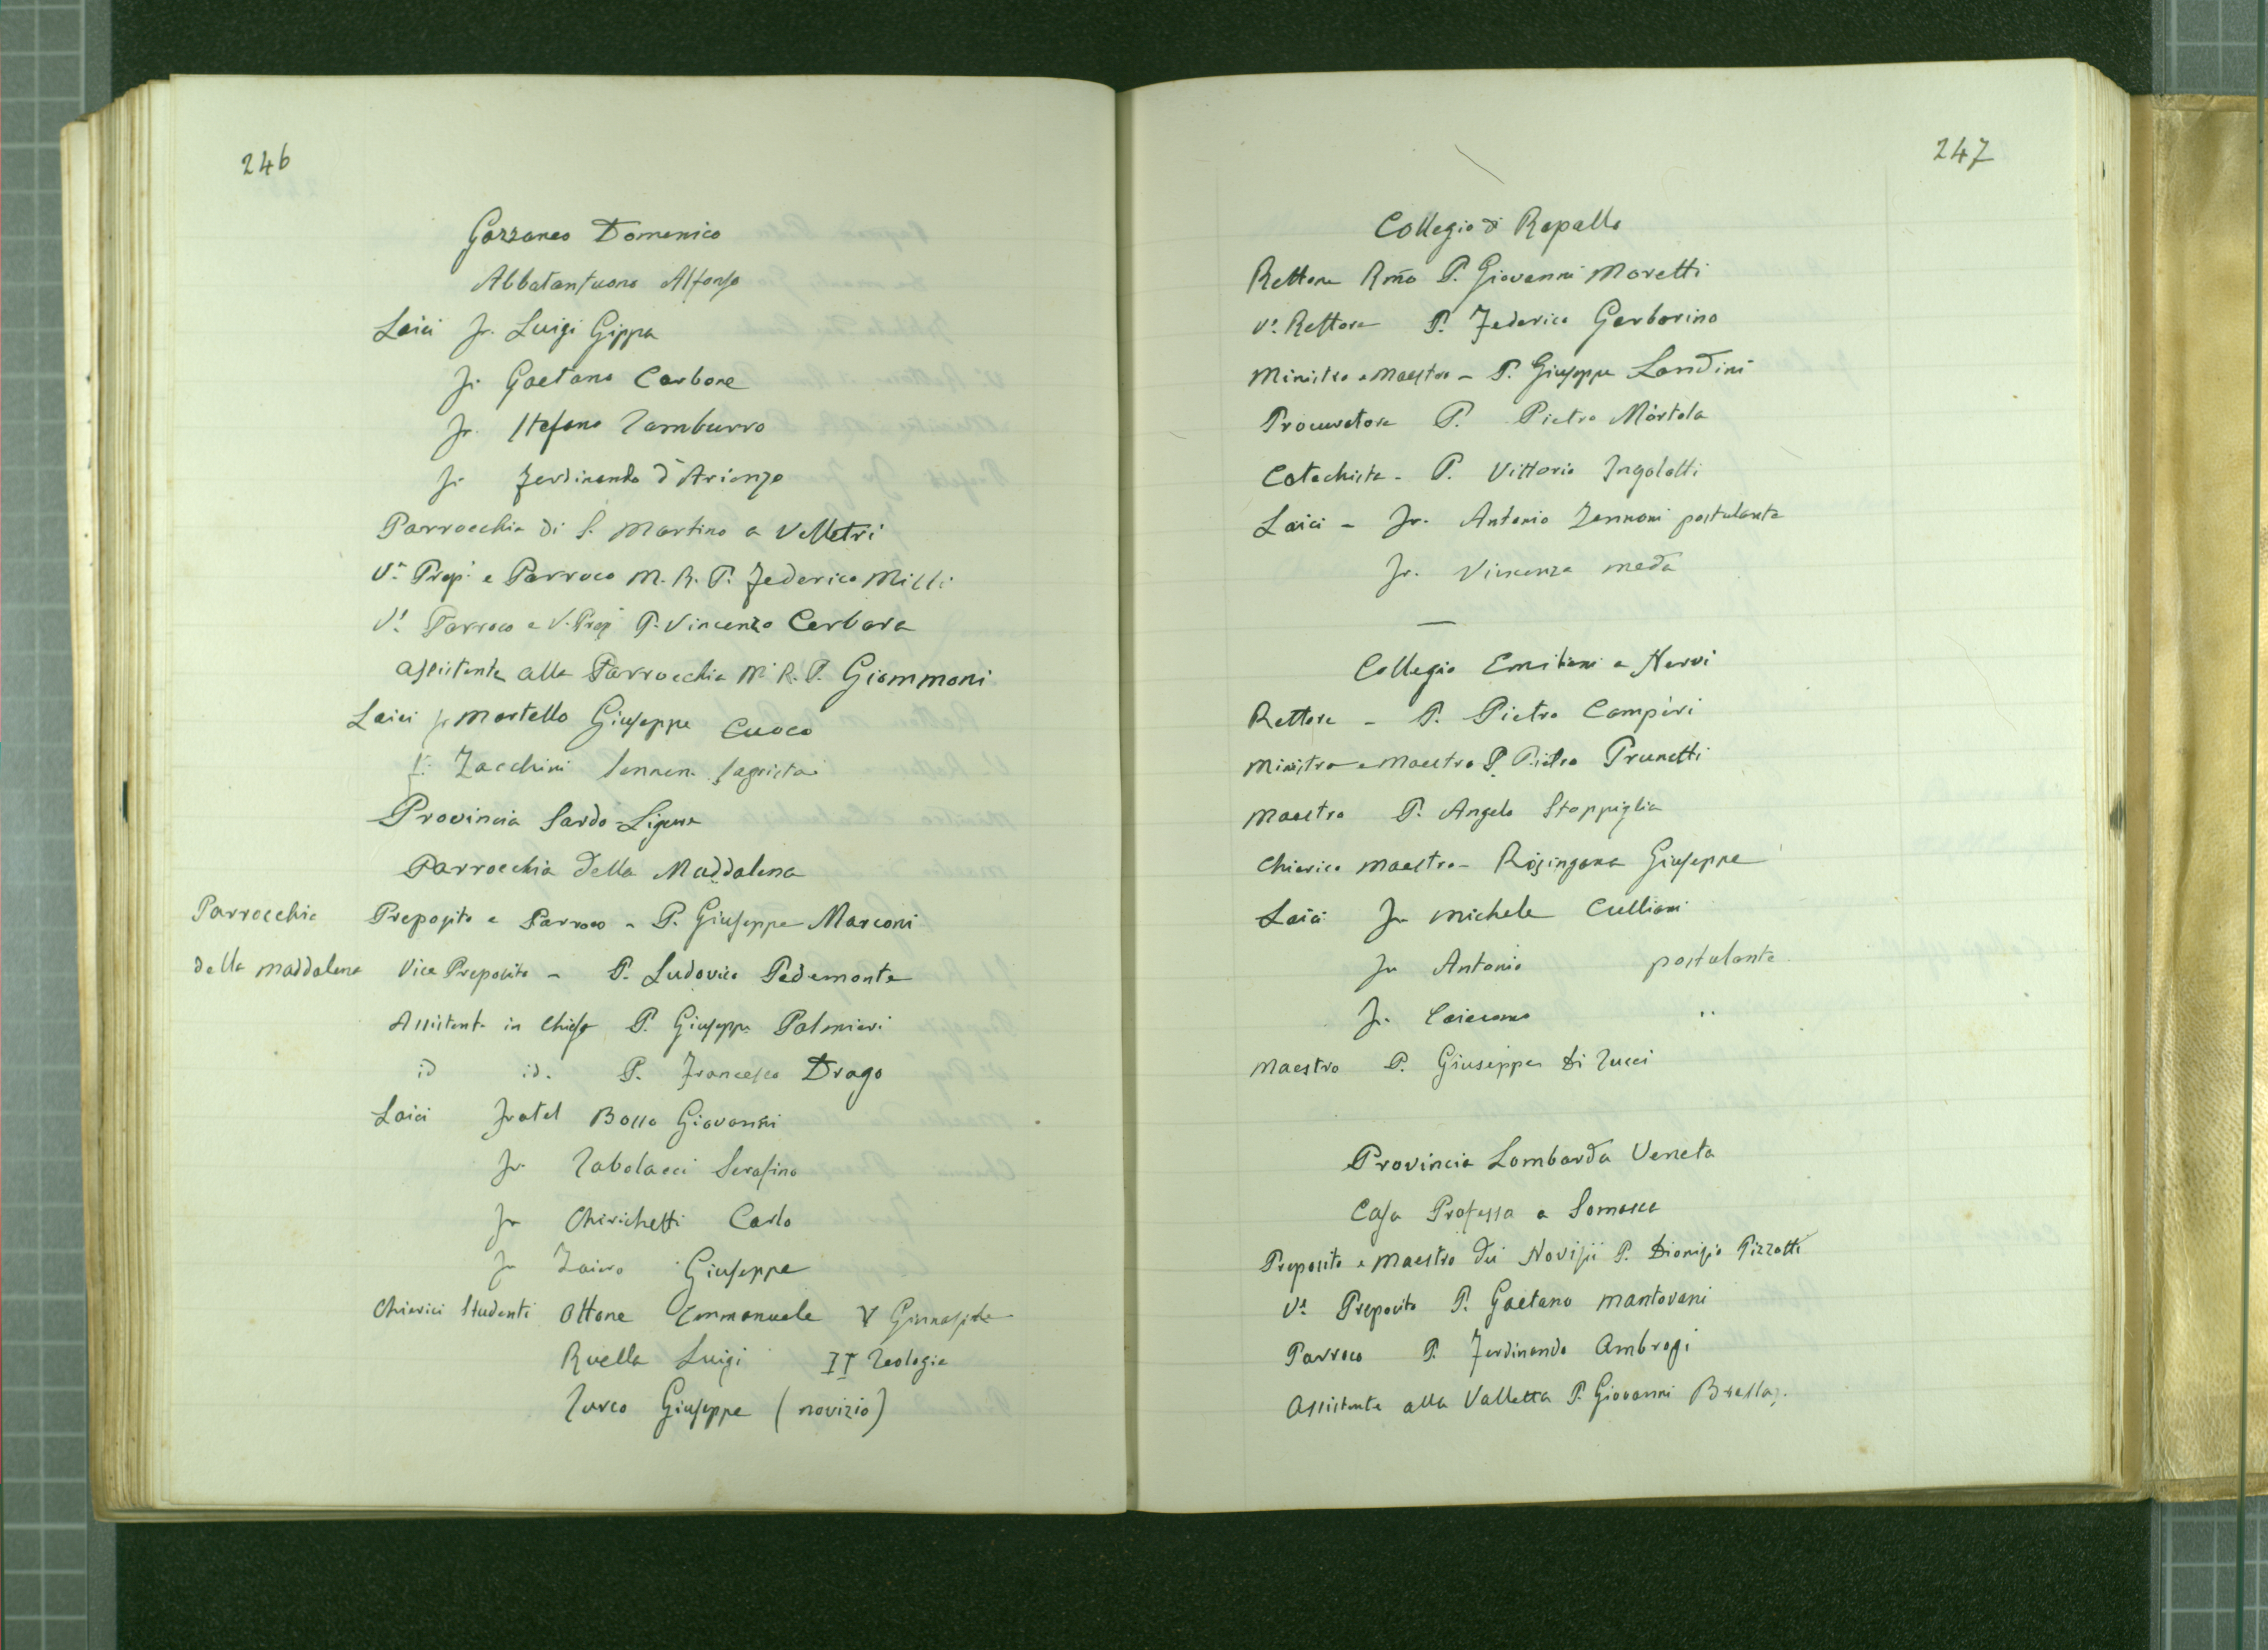 246
Gazzaneo Domenico
Abbatantuono Alfonso
Laici fr. Luigi Gippa
fr. Gaetano Carbone
fr. Stefano Tamburro
fr. Ferdinando d'Arienzo
Parrocchia di S. Martino a Velletri
V.e Prep. e Parroco M. R. P. Federico Milli
V.e Parroco e V. Prep. P. Vincenzo Cerbara
Assistente alla Parrocchia M. R. P. Giammoni
Laici fr Martello Giuseppe Cuoco
fr. Zacchini Sennen Sagrista
Provincia Sardo-Ligure
Parrocchia della Maddalena
Parrocchia della Maddalena
Preposito e Parroco - P. Giuseppe Marconi
Vice Preposito - P. Ludovico Pedemonte
Assistente in Chiesa P. Giuseppe Palmieri
id id. P. Francesco Drago
Laici Fratel Bosso Giovanni
fr. Tabolacci Serafino
fr Chirichetti Carlo
fr Zaino Giuseppe
Chierici Studenti Ottone Emmanuele V Ginnasiale
Ruella Luigi II Teologia
Turco Giuseppe (novizio)
247
Collegio di Rapallo
Rettore Rmo P. Giovanni Moretti
V.e Rettore P. Federico Garbarino
Ministro e Maestro - P. Giuseppe Landini
Procuratore P. Pietro Mòrtola
Catechista - P. Vittorio Ingolotti
Laici - Fr. Antonio Zannoni postulante
Fr. Vincenzo Meda
Collegio Emiliani a Nervi
Rettore - P. Pietro Campèri
Ministro e Maestro P. Pietro Prunetti
Maestro P. Angelo Stoppiglia
Chierico Maestro - Rosingana Giuseppe
Laici Fr Michele Culliani
Fr Antonio postulante
Fr. Giacomo "
Maestro P. Giuseppe Di Tucci
Provincia Lombarda Veneta
Casa Professa a Somasca
Preposito e Maestro dei Novizii P. Dionigio Pizzotti
V.e Preposito P. Gaetano Mantovani
Parroco P. Ferdinando Ambrosi
Assistente alla Valletta P. Giovanni